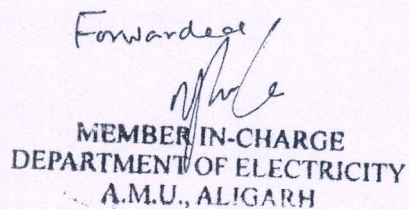 Forwarded
MEMBER IN-CHARGE
DEPARTMENT OF ELECTRICITY
A.M.U., ALIGARH